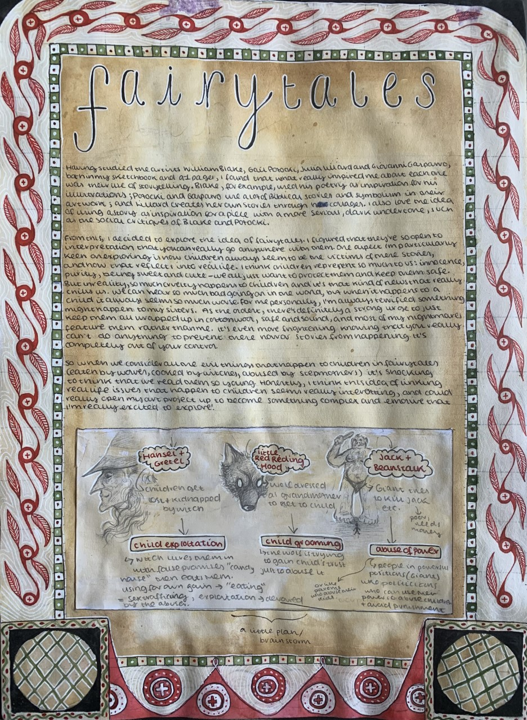 fairytales
Having studied the artists William Blake, Gail Potocki, Julia Lillard and Giovanni Gasparro,
both in my sketchbook and A1 pages, I found that what really inspired me about each one
was their use of storytelling. Blake, for example, used his poetry as inspiration for his
illustrations; Potocki and Gasparro use a lot of biblical stories and symbolism in their
artwork; and Lillard creates her own stories through collages. I also love the idea
of using a story as inspiration for a piece with a more serious, dark undertone, such
as the social critiques of Blake and Potocki.
From this, I decided to explore the idea of fairytales. I figured that they're so open to
interpretation that you can really go anywhere with them. One aspect I'm particularly
keen on exploring is how children always seem to be the victims of these stories,
and how that reflects into real life. I think children represent so much to us; innocence,
purity, being sweet and cute - we all just want to protect them and keep them safe.
But in reality, so much cruelty happens to children and it's that kind of news that really
hits us. Well, there's so much bad going on in the world, but when it happens to a
child it always seems so much worse. For me personally, I'm always terrified something
might happen to my sisters. As the oldest, there's definitely a strong urge to just
keep them all wrapped up in cotton wool, safe and sound, and most of my nightmares
feature them rather than me. It's even more frightening knowing that you really
can't do anything to prevent these horror stories from happening, it's
completely out of your control.
So when we consider all the evil things that happen to children in fairytales
(eaten by wolves, cooked by witches, abused by stepmothers) it's shocking
to think that we read them so young. Honestly, I think this idea of linking
real life issues that happen to children seems really interesting, and could
really open my art project up to become something complex and emotive that
I'm really excited to explore.
Hansel +
Gretel
children get
lost + kidnapped
by witch
child exploitation
witch lures them in
with false promises "candy
house" then eats them.
using for own gain → "eating"
= sex trafficking, exploitation → devoured
by the abuse.
little
Red Riding
Hood
wolf dressed
as grandmother
to get to child
child grooming
the wolf is trying
to gain child's trust
to abuse it
Jack +
Beanstalk
Giant tries
to kill Jack,
etc.
poor,
needs
money
abuse of power
people in powerful
positions (giants)
who can use their
power to abuse children
+ avoid punishment
a little plan/
brainstorm